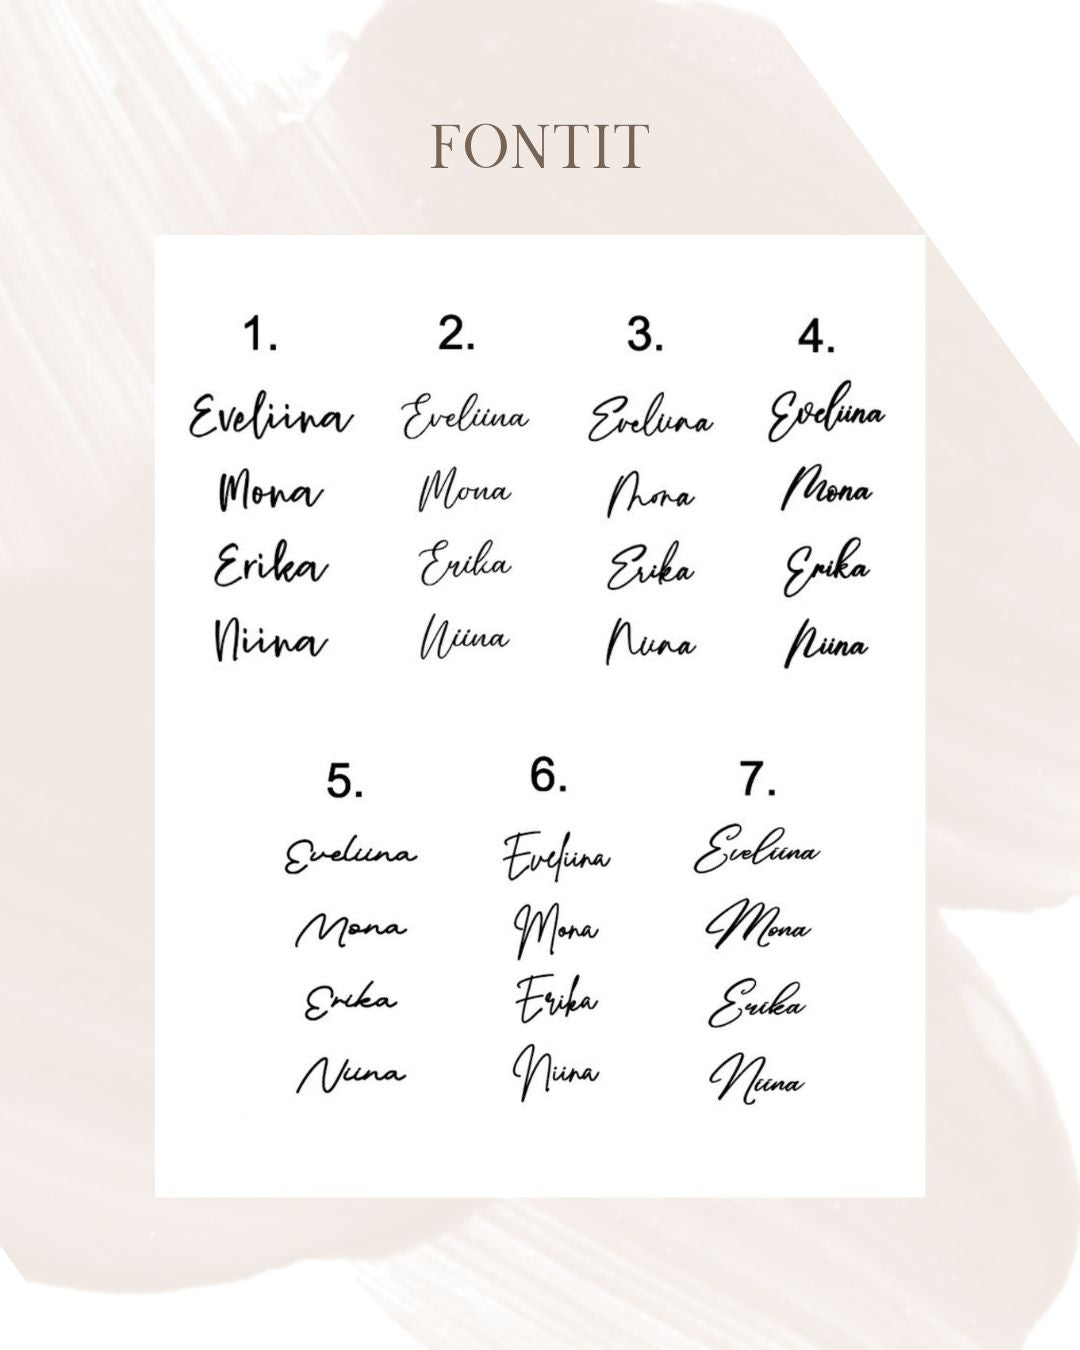 FONTIT
1. 2. 3. 4.
Eveliina Eveliina Eveliina Eveliina
Mona Mona Mona Mona
Erika Erika Erika Erika
Niina Niina Niina Niina
5. 6. 7.
Eveliina Eveliina Eveliina
Mona Mona Mona
Erika Erika Erika
Niina Niina Niina